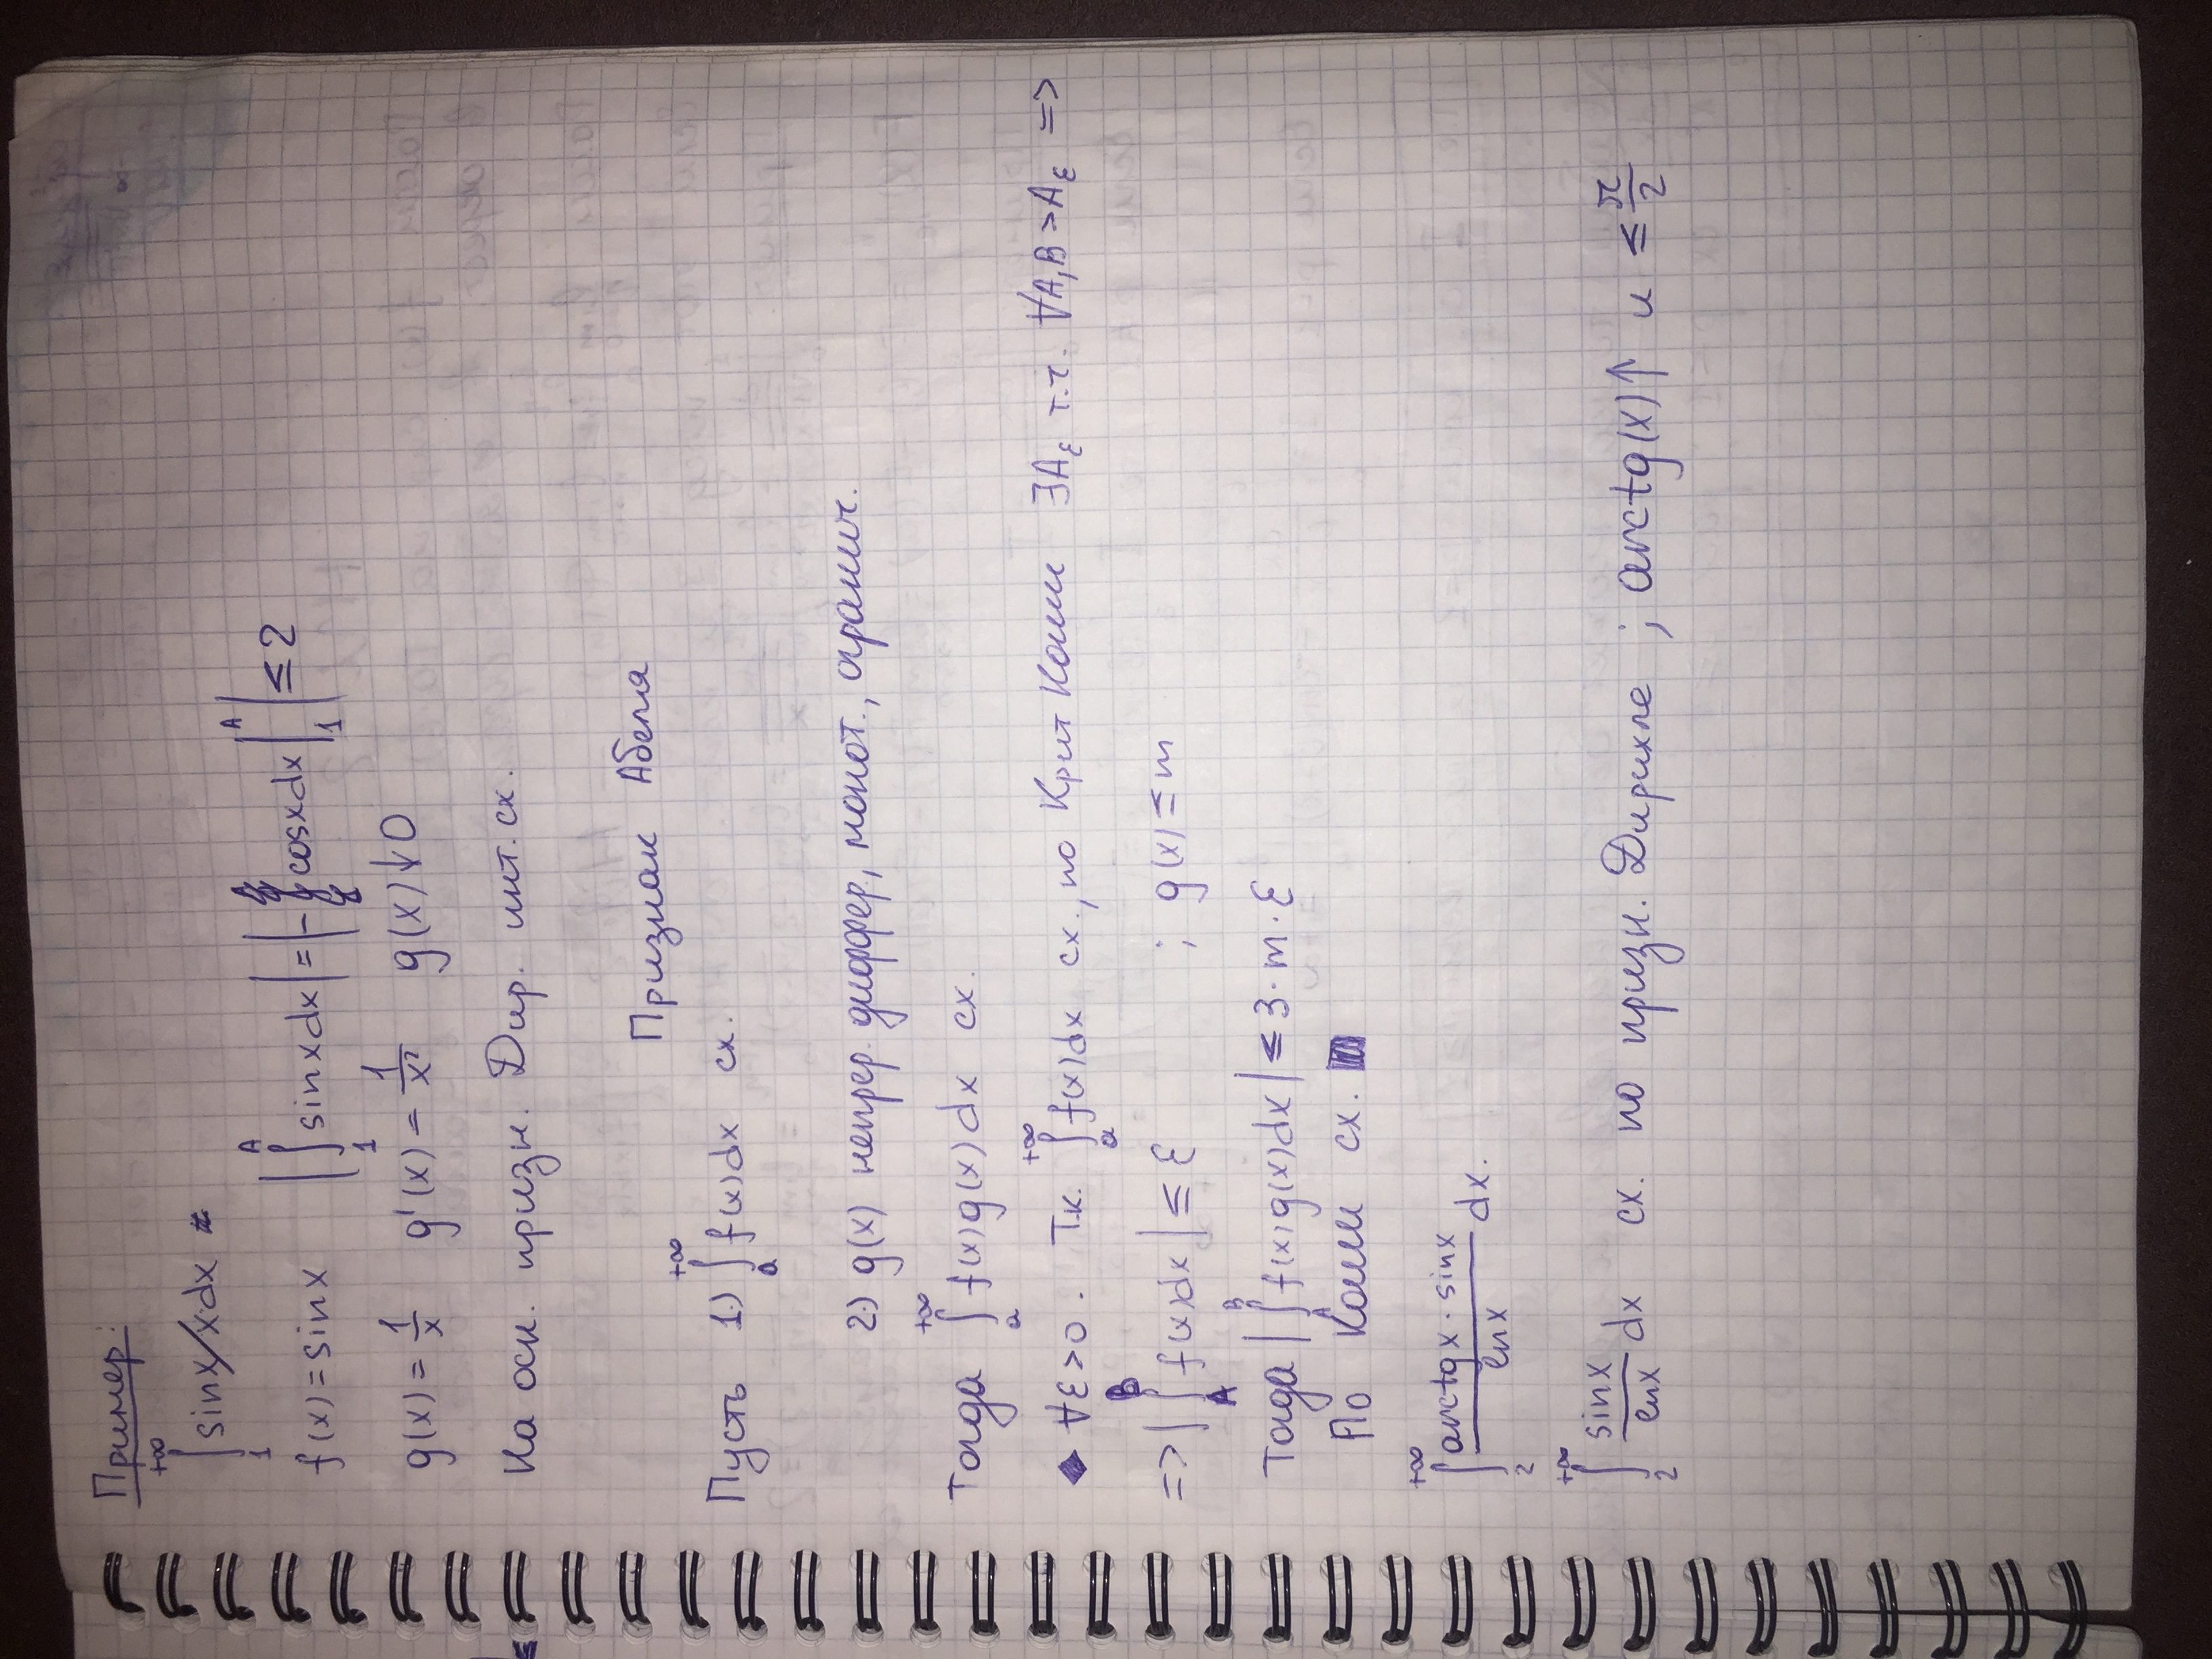 Пример:
+∞ ∫ 1 sinx/x dx
f(x)=sinx |∫ 1 A sinxdx|=|-cosxdx| 1 A|≤2
g(x)=1/x g'(x)=1/x² g(x)↓0
На осн. призн. Дир. инт. сх.
Признак Абеля
Пусть 1.) ∫ a +∞ f(x)dx сх.
2.) g(x) непрер. диффер, монот., огранич.
Тогда ∫ a +∞ f(x)g(x)dx сх.
◆ ∀ε>0. Т.к. ∫ a +∞ f(x)dx сх., по Крит Коши ∃Aε т.ч. ∀A,B>Aε =>
=>|∫ A B f(x)dx|≤ε ; g(x)≤m
Тогда |∫ A B f(x)g(x)dx|≤3·m·ε
По Коши сх.
∫ 2 +∞ arctgx·sinx/lnx dx.
∫ 2 +∞ sinx/lnx dx сх. по призн. Дирихле ; arctg(x)↑ и ≤π/2